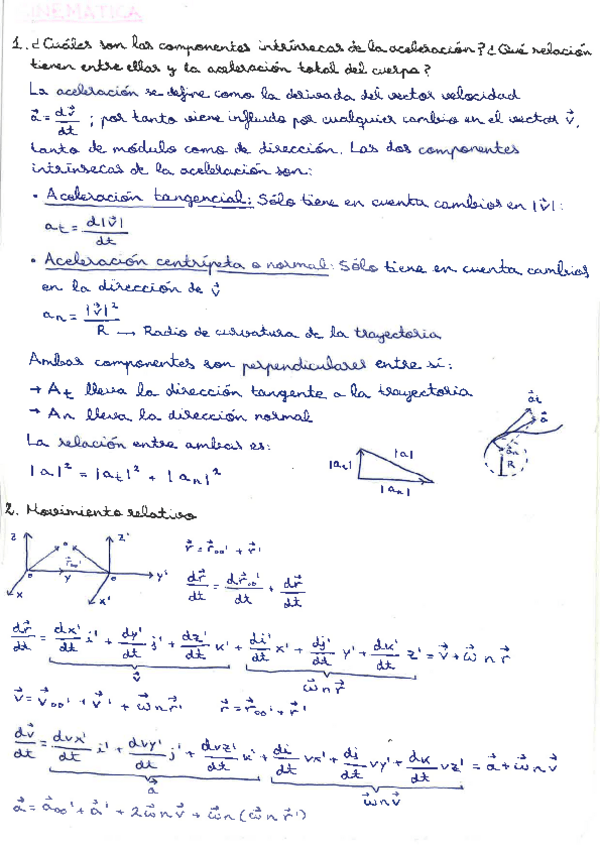 CINEMÁTICA
1. ¿Cuáles son las componentes intrínsecas de la aceleración? ¿Qué relación
tienen entre ellas y la aceleración total del cuerpo?
La aceleración se define como la derivada del vector velocidad
a⃗ = dv⃗/dt ; por tanto viene influido por cualquier cambio en el vector v⃗,
tanto de módulo como de dirección. Las dos componentes
intrínsecas de la aceleración son:
• Aceleración tangencial: Sólo tiene en cuenta cambios en |v⃗|:
at = d|v⃗|/dt
• Aceleración centrípeta o normal: Sólo tiene en cuenta cambios
en la dirección de v⃗
an = |v⃗|²/R → Radio de curvatura de la trayectoria
Ambas componentes son perpendiculares entre sí:
→ At lleva la dirección tangente a la trayectoria
→ An lleva la dirección normal
a⃗t
a⃗
a⃗n
R
La relación entre ambas es:
|a|² = |at|² + |an|²
|at| |a|
|an|
2. Movimiento relativo
z z'
r⃗oo'
o y o y'
x x'
r⃗ = r⃗oo' + r⃗'
dr⃗/dt = dr⃗oo'/dt + dr⃗/dt
dr⃗/dt = dx'/dt i' + dy'/dt j' + dz'/dt k' + di'/dt x' + dj'/dt y' + dk'/dt z' = v⃗ + ω⃗ ∧ r⃗
v⃗ ω⃗ ∧ r⃗
v⃗ = v⃗oo' + v⃗' + ω⃗ ∧ r⃗' r⃗ = r⃗oo' + r⃗'
dv⃗/dt = dvx'/dt i' + dvy'/dt j' + dvz'/dt k' + di/dt vx' + dj/dt vy' + dk/dt vz' = a⃗ + ω⃗ ∧ v⃗
a⃗ ω⃗ ∧ v⃗
a⃗ = a⃗oo' + a⃗' + 2ω⃗ ∧ v⃗ + ω⃗ ∧ (ω⃗ ∧ r⃗')